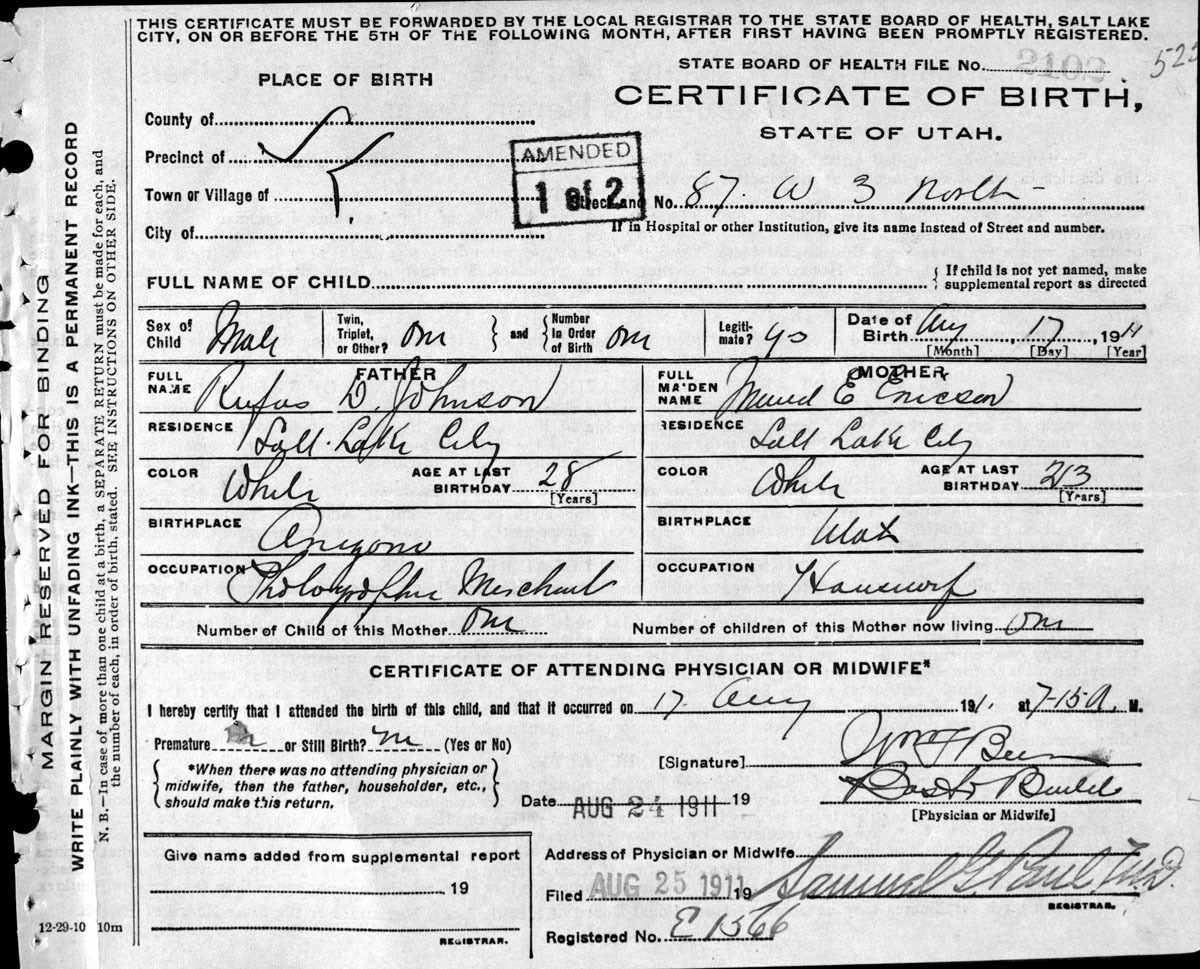 THIS CERTIFICATE MUST BE FORWARDED BY THE LOCAL REGISTRAR TO THE STATE BOARD OF HEALTH, SALT LAKE
CITY, ON OR BEFORE THE 5TH OF THE FOLLOWING MONTH, AFTER FIRST HAVING BEEN PROMPTLY REGISTERED.
PLACE OF BIRTH
STATE BOARD OF HEALTH FILE No.
CERTIFICATE OF BIRTH,
STATE OF UTAH.
County of
Precinct of
Town or Village of
City of
AMENDED
1 of 2
Street and No. 87. W 3 North
If in Hospital or other Institution, give its name instead of Street and number.
FULL NAME OF CHILD
If child is not yet named, make
supplemental report as directed
Sex of Child Male
Twin, Triplet, or Other? One
and
Number in Order of Birth One
Legitimate? yes
Date of Birth Aug 17 1911
[Month] [Day] [Year]
FATHER
FULL NAME Rufus D. Johnson
RESIDENCE Salt Lake City
COLOR White
AGE AT LAST BIRTHDAY 28
[Years]
BIRTHPLACE Arizona
OCCUPATION Photographic Merchant
MOTHER
FULL MAIDEN NAME E Ericson
RESIDENCE Salt Lake City
COLOR White
AGE AT LAST BIRTHDAY 23
[Years]
BIRTHPLACE Utah
OCCUPATION Housewife
Number of Child of this Mother One
Number of children of this Mother now living One
CERTIFICATE OF ATTENDING PHYSICIAN OR MIDWIFE*
I hereby certify that I attended the birth of this child, and that it occurred on 17. Aug 1911. at 7-15 A. M.
Premature no or Still Birth? no (Yes or No)
*When there was no attending physician or
midwife, then the father, householder, etc.,
should make this return.
[Signature]
Date AUG 24 1911 19
[Physician or Midwife]
Give name added from supplemental report
19
REGISTRAR.
Address of Physician or Midwife
Filed AUG 25 1911 19 Samuel G Paul M.D.
REGISTRAR.
Registered No. E 1566
12-29-10 10m
MARGIN RESERVED FOR BINDING
WRITE PLAINLY WITH UNFADING INK—THIS IS A PERMANENT RECORD
N. B.—In case of more than one child at a birth, a SEPARATE RETURN must be made for each, and
the number of each, in order of birth, stated. SEE INSTRUCTIONS ON OTHER SIDE.